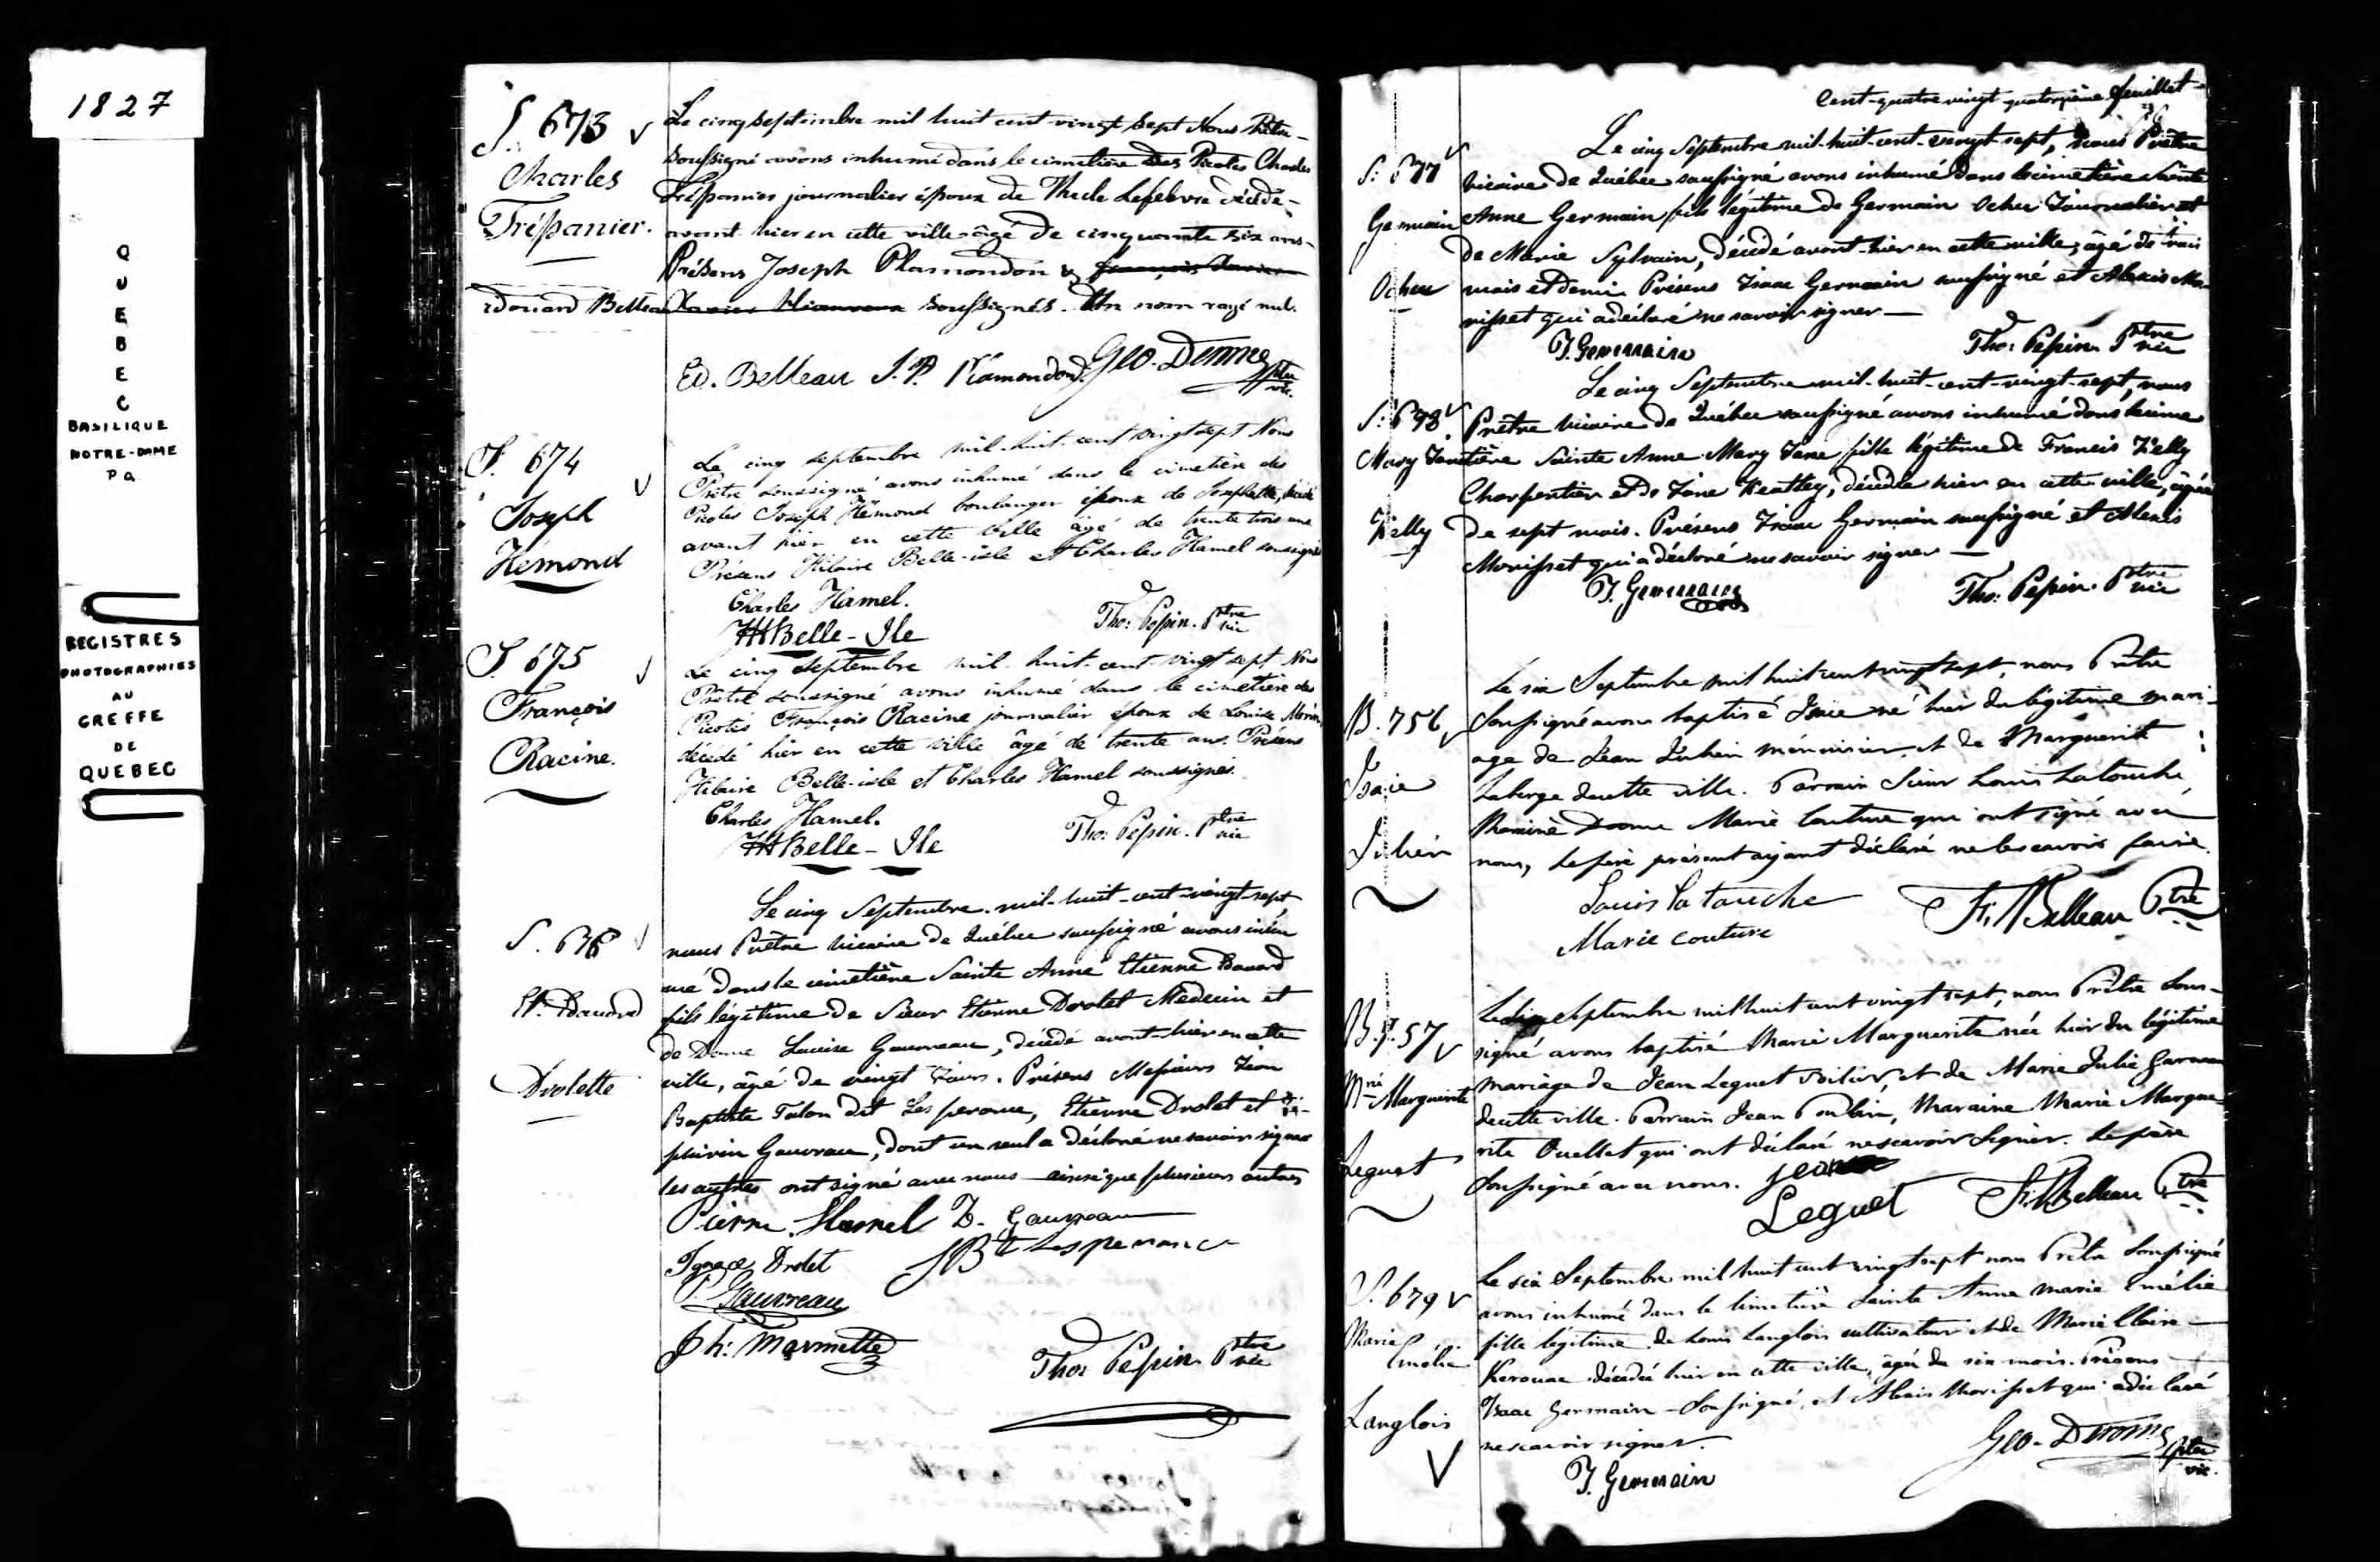 1827
QUEBEC
BASILIQUE
NOTRE-DAME
PQ
REGISTRES
PHOTOGRAPHIES
AU
GREFFE
DE
QUEBEC
S. 673
Charles
Trépanier.
Edouard Belleau
Le cinq septembre mil huit cent vingt sept Nous Prêtre
soussigné avons inhumé dans le cimetière des Picotés Charles
Trépanier journalier époux de Thecle Lefebvre décédé
avant hier en cette ville âgé de cinquante six ans
Présens Joseph Plamondon &
soussignés. Un nom rayé nul.
Ed. Belleau J. P. Plamondon Geo. Derome ptre vic.
S. 674
Joseph
Hémond
Le cinq septembre mil-huit-cent vingt sept Nous
Prêtre soussigné avons inhumé dans le cimetière des
Picotés Joseph Hémond boulanger époux de Josephette, décédé
avant hier en cette ville âgé de trente trois ans
Présens Hilaire Belle-isle et Charles Hamel soussignés
Charles Hamel.
HH Belle-Ile Tho: Pepin. Ptre vic
S. 675
François
Racine.
Le cinq septembre mil-huit-cent-vingt sept Nous
Prêtre soussigné avons inhumé dans le cimetière des
Picotés François Racine journalier époux de Louise Morin,
décédé hier en cette ville âgé de trente ans. Présens
Hilaire Belle-isle et Charles Hamel soussignés.
Charles Hamel.
HH Belle-Ile Tho: Pepin. Ptre vic
S. 676
Et.
Drolette
Le cinq Septembre mil-huit-cent-vingt-sept
nous Prêtre vicaire de Québec soussigné avons inhu
mé dans le cimetière Sainte Anne Etienne
fils légitime de Sieur Etienne Drolet Médecin et
de Dame Louise Gauvreau, décédé avant-hier en cette
ville, âgé de vingt jours. Présens Messieurs Jean
Baptiste Talon dit Lesperance, Etienne Drolet et
Gauvreau, dont un seul a déclaré ne savoir signer
les autres ont signé avec nous ainsi que plusieurs autres
Pierre Hamel Z. Gauvreau
Ignace Drolet JBte Lesperance
P. Gauvreau
Jh: Marmette Tho: Pepin. Ptre vic
Cent-quatre vingt quatorzième feuillet
S: 677
Germain
Ocheu
Le cinq Septembre mil-huit-cent-vingt-sept, nous Prêtre
vicaire de Québec soussigné avons inhumé dans le cimetière Sainte
Anne Germain fils légitime de Germain Ocheu Journalier et
de Marie Sylvain, décédé avant-hier en cette ville, âgé de trois
mois et demi Présens Isaac Germain soussigné et Alexis Mo-
risset qui a déclaré ne savoir signer
I. Germain Tho: Pepin Ptre vic
S: 678
Mary Jane
Kelly
Le cinq Septembre mil-huit-cent-vingt-sept, nous
Prêtre vicaire de Québec soussigné avons inhumé dans le cime
tière Sainte Anne Mary Jane fille légitime de Francis Kelly
Charpentier et de Jane Keattey, décédée hier en cette ville, âgée
de sept mois. Présens Isaac Germain soussigné et Alexis
Morisset qui a déclaré ne savoir signer
I. Germain Tho: Pepin. Ptre vic
B. 756
Isaïe
Julien
Le six Septembre mil huit cent vingt sept, nous Prêtre
soussigné avons baptisé Isaïe né hier du légitime mari-
age de Jean Julien ménuisier et de Marguerite
Laberge de cette ville. Parrain Sieur Louis Latouche,
Maraine Dame Marie Couture qui ont signé avec
nous, le père présent ayant déclaré ne le savoir faire.
Louis Latouche
Marie couture F: Belleau Ptre
B. 757
Mrie Marguerite
Leguet
septembre mil huit cent vingt sept, nous Prêtre sous-
signé avons baptisé Marie Marguerite née hier du légitime
mariage de Jean Leguet voilier, et de Marie Julie
de cette ville. Parrain Jean Poulin, Maraine Marie Margue-
rite Ouellet qui ont déclaré ne scavoir signer. Le père
soussigné avec nous. jean
Leguet F: Belleau Ptre
S. 679
Marie
Emélie
Langlois
Le six Septembre mil huit cent vingt sept nous Prêtre soussigné
avons inhumé dans le cimetière Sainte Anne marie Emélie
fille légitime de Louis Langlois cultivateur et de Marie Claire
Kerouac décédée hier en cette ville, âgée de six mois. Présens
Isaac Germain soussigné, et Alexis Morisset qui a déclaré
ne scavoir signer.
I. Germain Geo. Derome ptre vic.